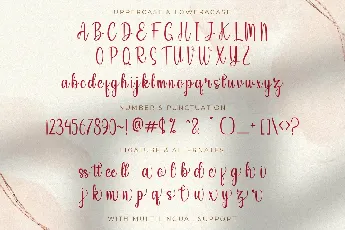 UPPERCASE & LOWERACASE
ABCDEFGHIJKLMN
OPQRSTUVWXYZ
abcdefghijklmnopqrstuvwxyz
NUMBER & PUNCTUATION
1234567890~!@#$%^&*()_+[]\<>?
LIGATURE & ALTERNATES
ss tt ee ll a c l b d e f g h i
j k m n o p q r s t u v w x y z r
WITH MULTILINGUAL SUPPORT